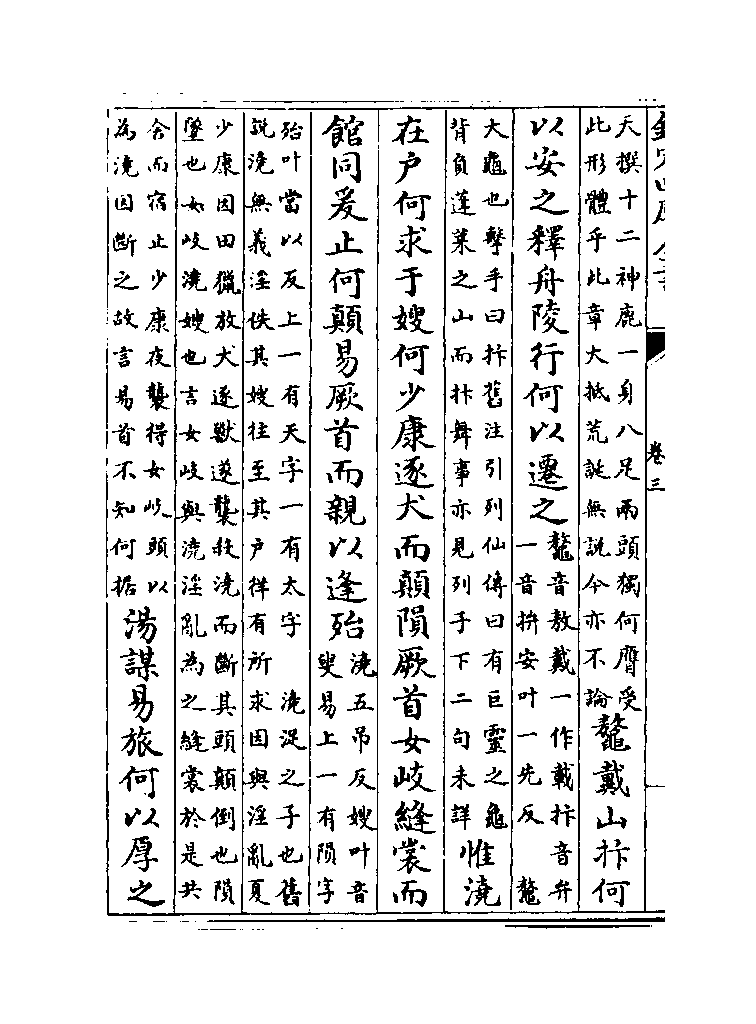 欽定四庫全書
卷三
天撰十二神鹿一身八足兩頭獨何膺受
此形體乎此章大抵荒誕無說今亦不論
鼇戴山抃何
以安之釋舟陵行何以遷之
鼇音敖戴一作載抃音弁
一音拚安叶一先反 鼇
大龜也擊手曰抃舊注引列仙傳曰有巨靈之龜
背負蓬萊之山而抃舞事亦見列子下二句未詳
惟澆
在户何求于嫂何少康逐犬而顛隕厥首女岐縫裳而
館同爰止何顛易厥首而親以逢殆
澆五吊反嫂叶音
叟易上一有隕字
殆叶當以反上一有天字一有太字 澆浞之子也舊
說澆無義淫佚其嫂往至其户佯有所求因與淫亂夏
少康因田獵放犬逐獸遂襲殺澆而斷其頭顛倒也隕
墜也女岐澆嫂也言女岐與澆淫亂為之縫裳於是共
舍而宿止少康夜襲得女岐頭以
為澆因斷之故言易首不知何据
湯謀易旅何以厚之